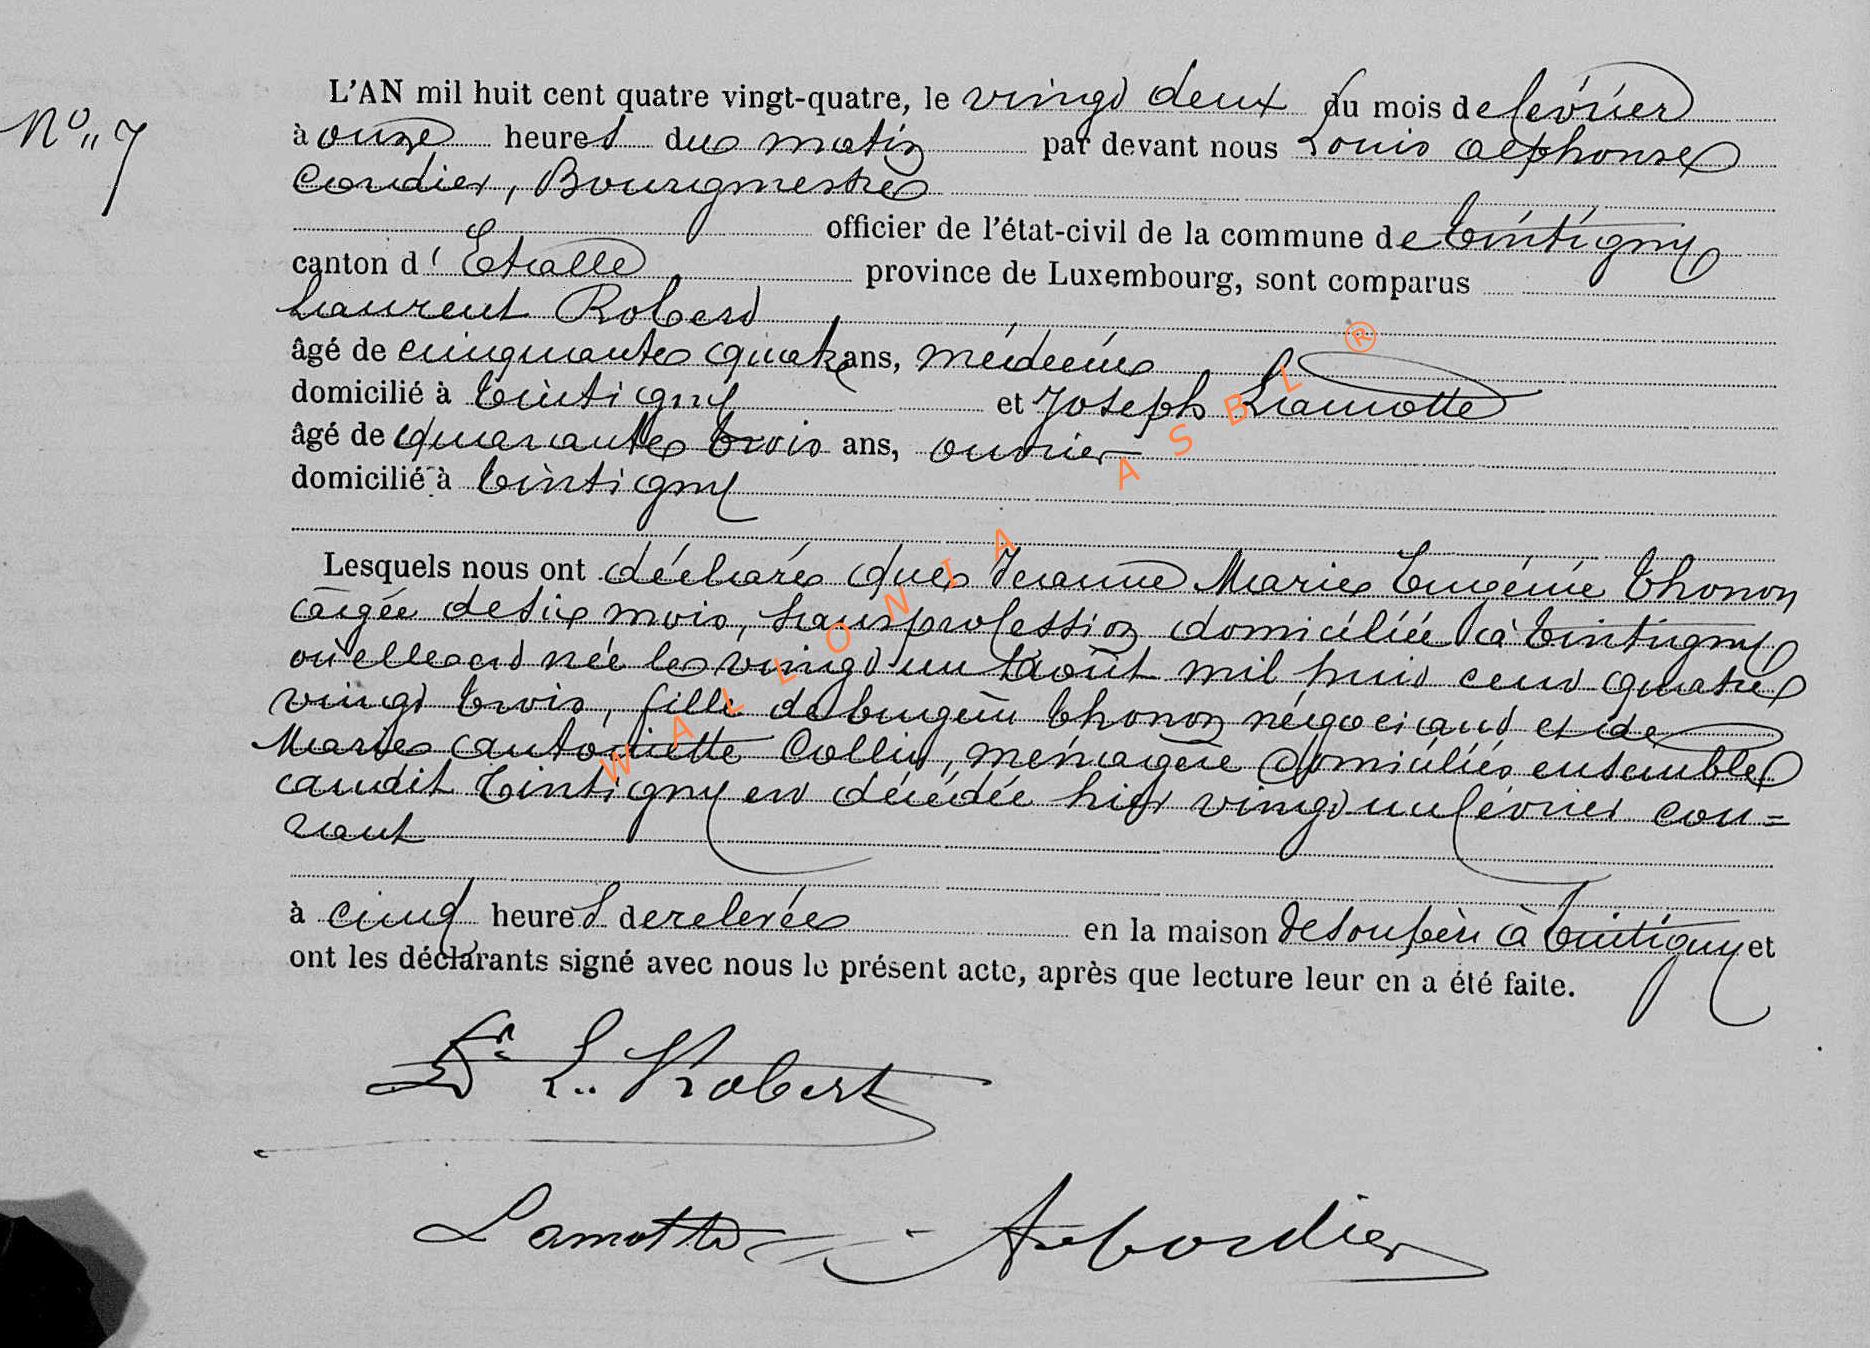 N° 7
L'AN mil huit cent quatre vingt-quatre, le vingt deux du mois de février
à onze heures du matin par devant nous Louis Alphonse
Cordier, Bourgmestre
officier de l'état-civil de la commune de Tintigny
canton d'Etalle province de Luxembourg, sont comparus
Laurent Robert
âgé de cinquante quatre ans, médecin
domicilié à Tintigny et Joseph Lamotte
âgé de quarante trois ans, ouvrier
domicilié à Tintigny
Lesquels nous ont déclaré que Jeanne Marie Eugénie Thonon
âgée de six mois, sans profession domiciliée à Tintigny
où elle est née le vingt un août mil huit cent quatre
vingt trois, fille de Eugène Thonon négociant et de
Marie Antoinette Collin, ménagère domiciliés ensemble
audit Tintigny est décédée hier vingt un février cou=
rant
à cinq heures de relevée en la maison de son père à Tintigny et
ont les déclarants signé avec nous le présent acte, après que lecture leur en a été faite.
Dr L. Robert
Lamotte
A Cordier
WALLONIA ASBL ®